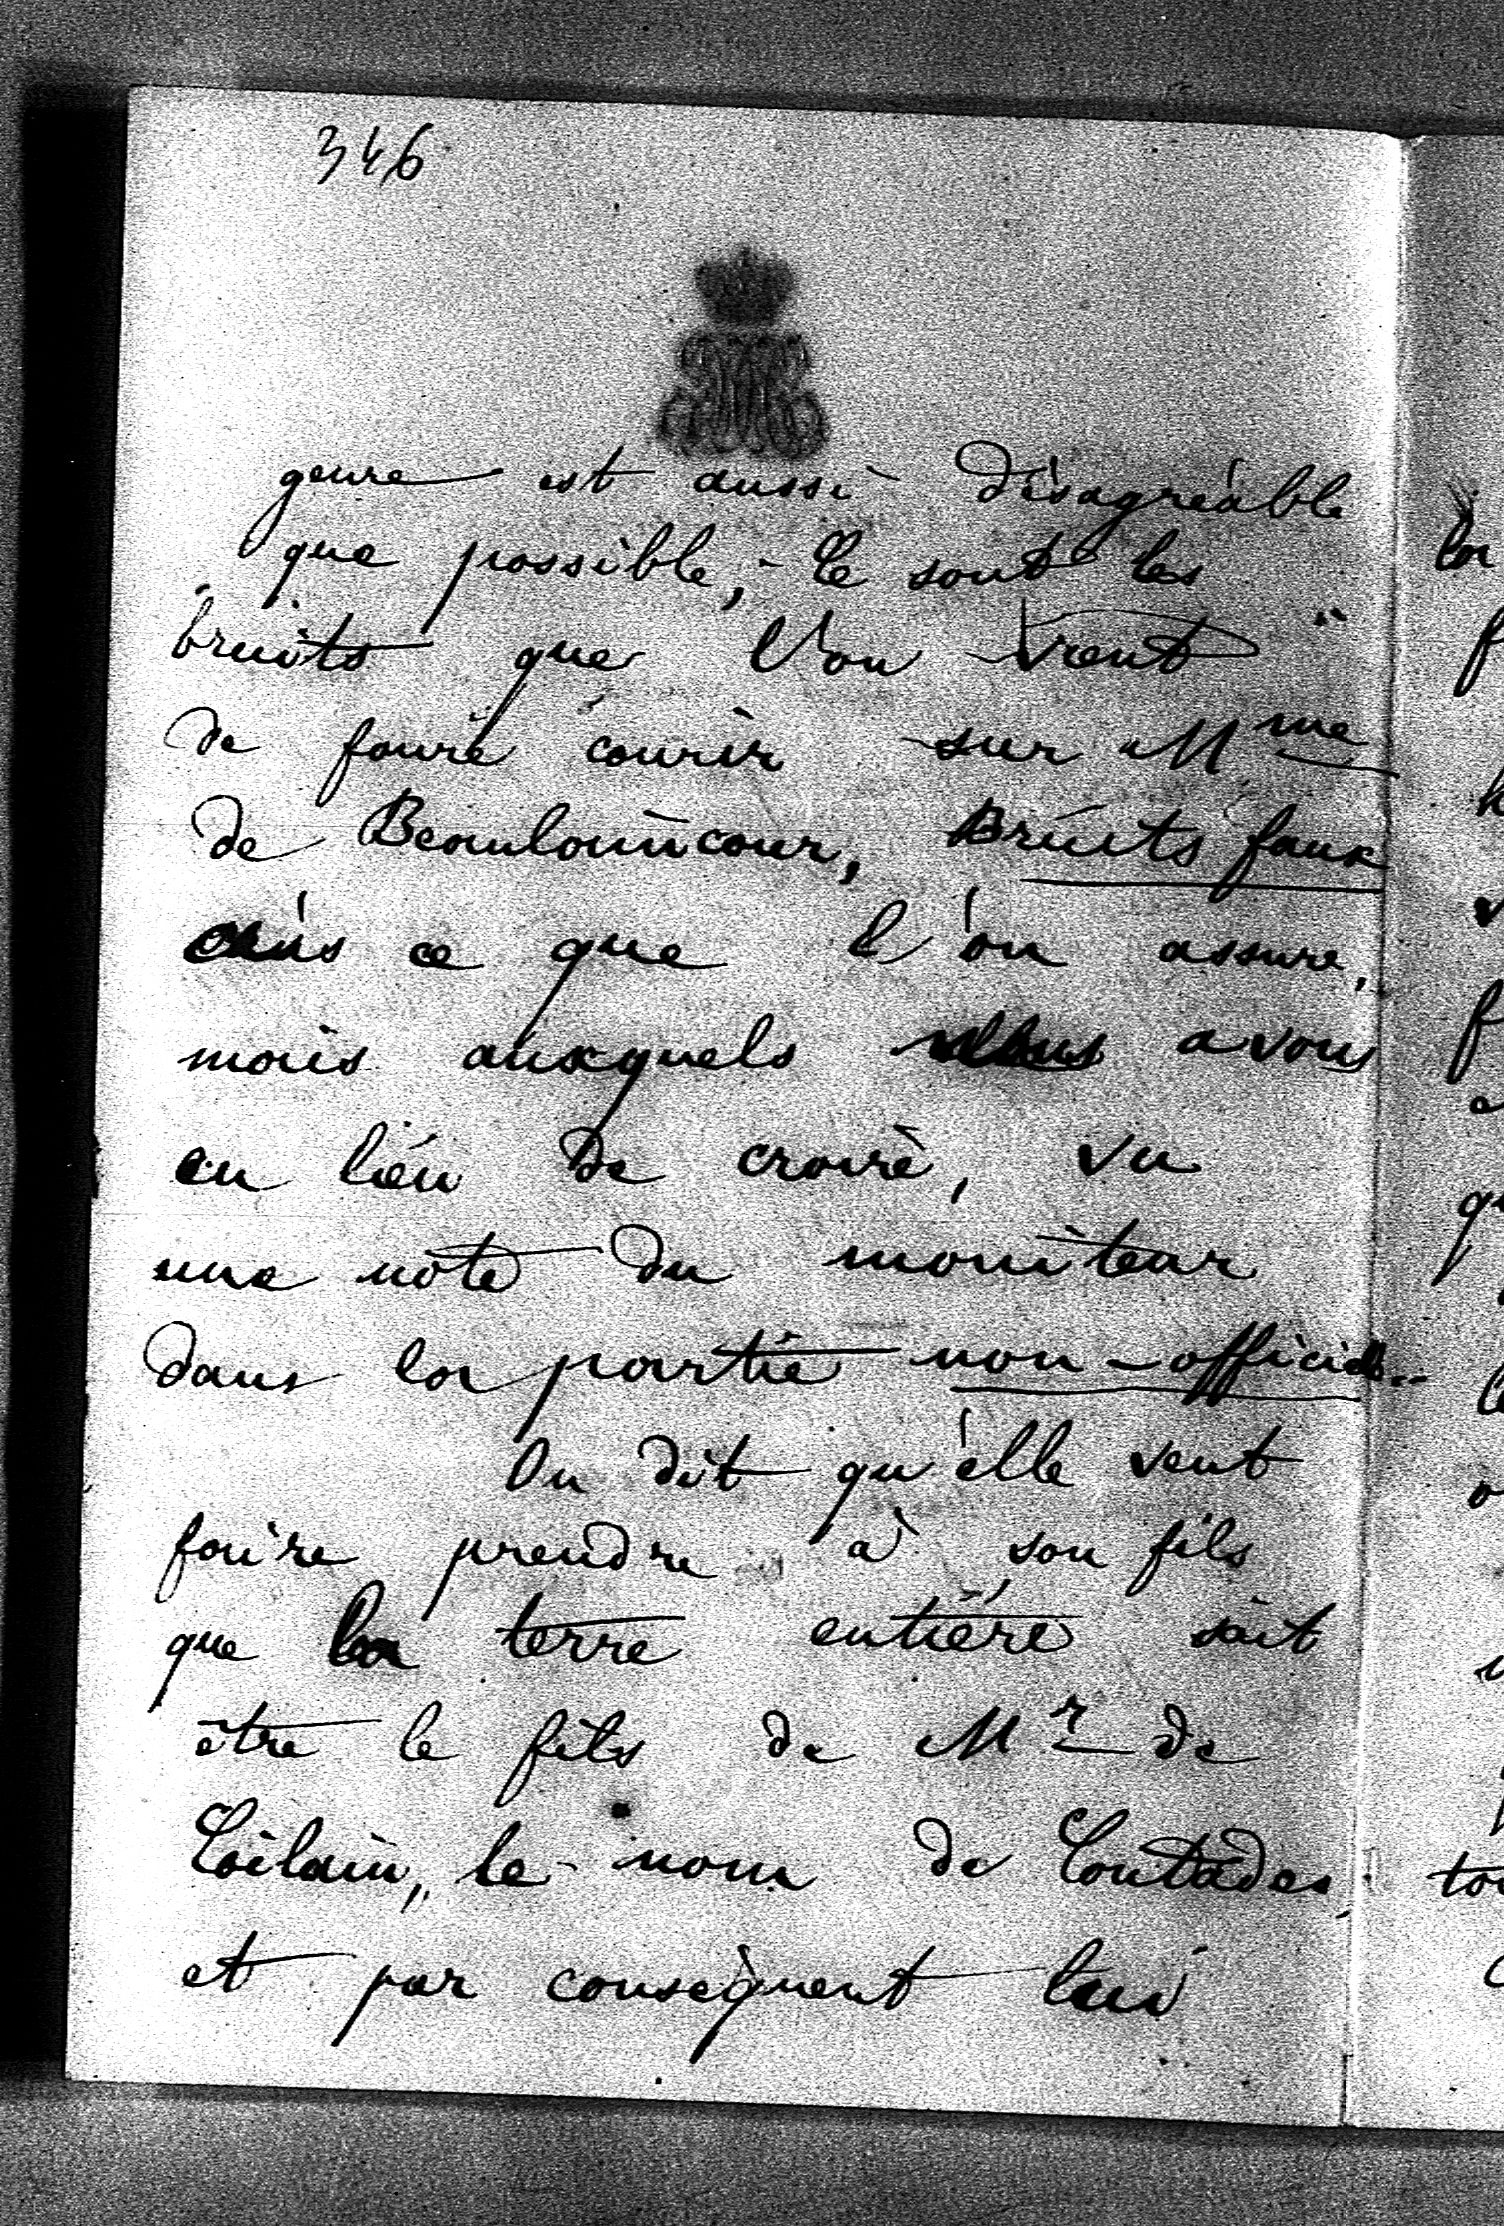 346
genre est aussi désagréable
que possible, le sont les
bruits que l'on vient
de faire courir sur Mme
de Beaulaincour, Bruits faux
ce que l'on assure,
mais auxquels nous avons
eu lieu de croire, vu
une note du moniteur
dans la partie non-officielle..
On dit qu'elle veut
faire prendre à son fils
que la terre entière sait
être le fils de Mr de
Coilain, le nom de Contades,
et par conséquent lui